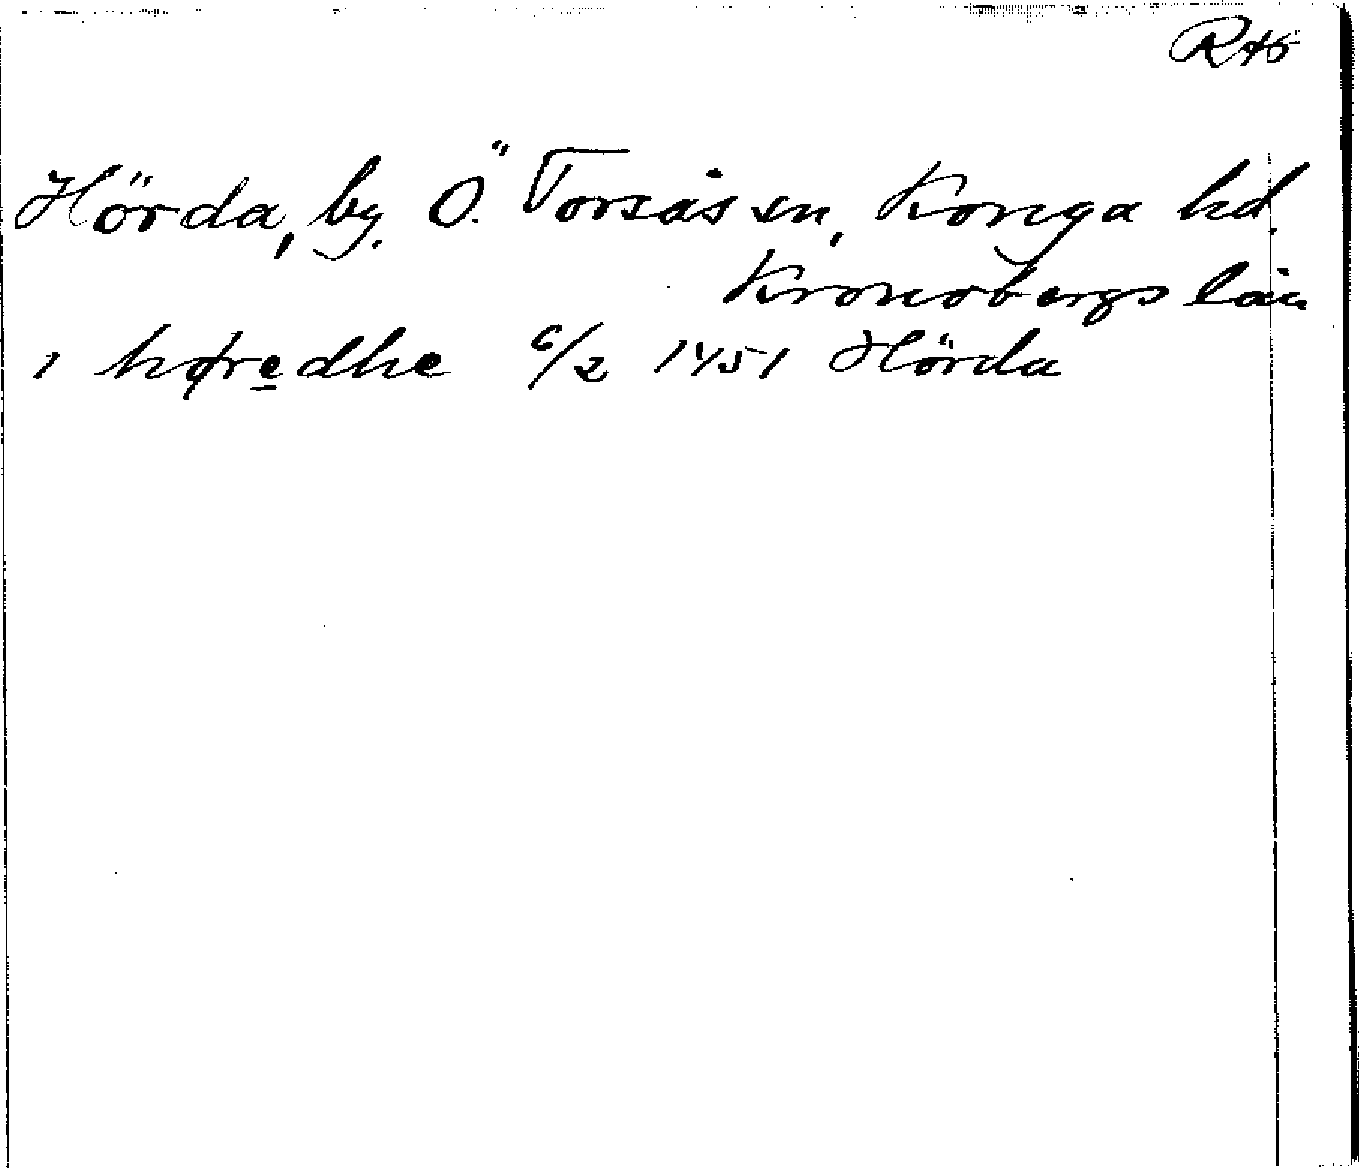 RAÖ
Hörda, by. Ö. Torsås sn, Konga hd.
Kronobergs län
i høredhe 6/2 1451 Hörda